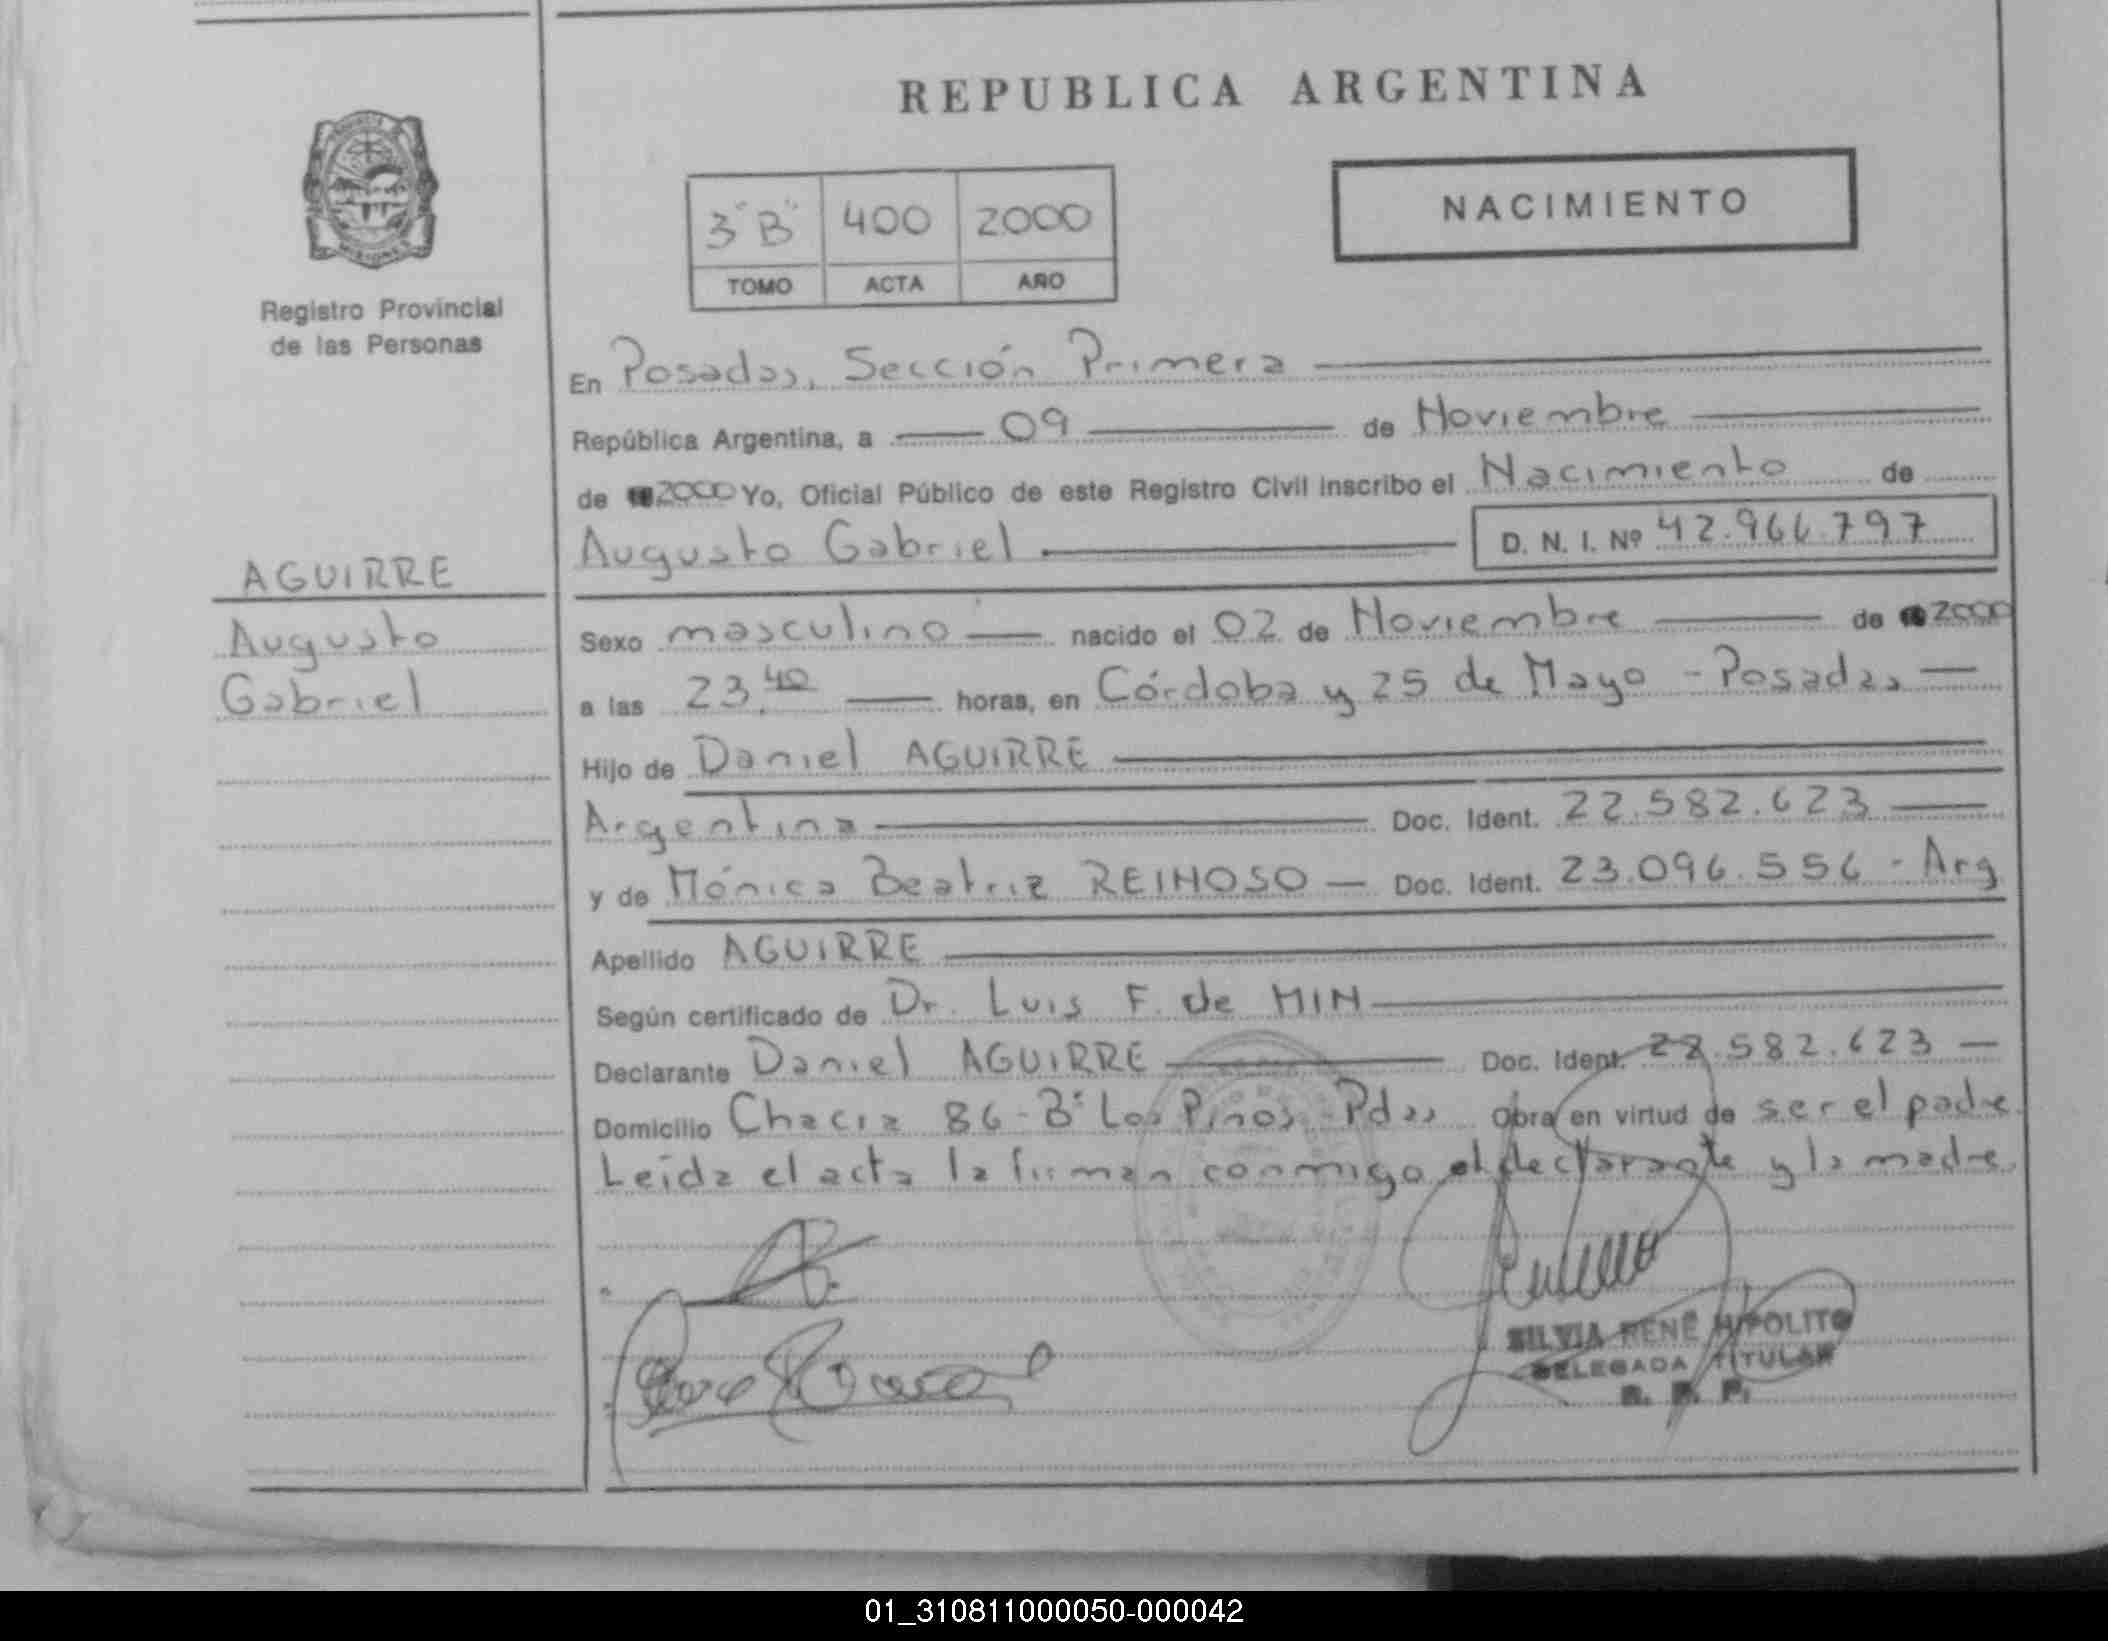 REPUBLICA ARGENTINA
NACIMIENTO
3 "B" 400 2000
TOMO ACTA AÑO
Registro Provincial
de las Personas
En Posadas, Sección Primera
República Argentina, a 09 de Noviembre
de 2000 Yo, Oficial Público de este Registro Civil inscribo el Nacimiento de
Augusto Gabriel D. N. I. Nº 42.966.797
AGUIRRE
Augusto
Gabriel
Sexo masculino nacido el 02 de Noviembre de 2000
a las 23.40 horas, en Córdoba y 25 de Mayo - Posadas
Hijo de Daniel AGUIRRE
Argentina Doc. Ident. 22.582.623
y de Mónica Beatriz REINOSO Doc. Ident. 23.096.556 - Arg
Apellido AGUIRRE
Según certificado de Dr. Luis F. de MIN
Declarante Daniel AGUIRRE Doc. Ident. 22.582.623
Domicilio Chacra 86 - Bº Los Pinos - Pdas Obra en virtud de ser el padre
Leída el acta la firman conmigo el declarante y la madre.
SILVIA RENÉ HIPOLITO
DELEGADA TITULAR
R. P. P.
01_310811000050-000042